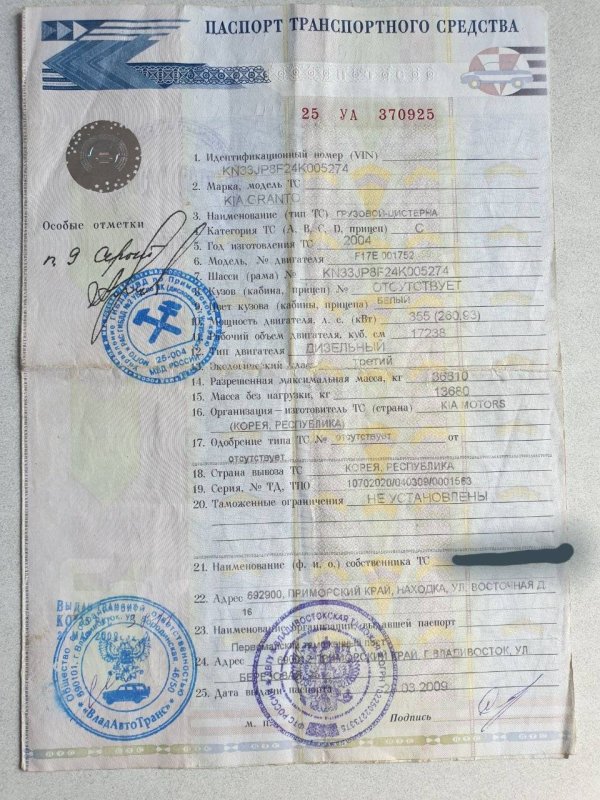 ПАСПОРТ ТРАНСПОРТНОГО СРЕДСТВА
25 УА 370925
1. Идентификационный номер (VIN)
KN33JP8F24K005274
2. Марка, модель ТС
KIA GRANTO
Особые отметки
3. Наименование (тип ТС) ГРУЗОВОЙ-ЦИСТЕРНА
4. Категория ТС (А, В, С, D, прицеп) C
5. Год изготовления ТС 2004
6. Модель, № двигателя F17E 001752
7. Шасси (рама) № KN33JP8F24K005274
Кузов (кабина, прицеп) № ОТСУТСТВУЕТ
Цвет кузова (кабины, прицепа) БЕЛЫЙ
10. Мощность двигателя, л. с. (кВт) 355 (260,93)
Рабочий объем двигателя, куб. см 17238
Тип двигателя ДИЗЕЛЬНЫЙ
Экологический класс третий
14. Разрешенная максимальная масса, кг 36310
15. Масса без нагрузки, кг 13680
16. Организация–изготовитель ТС (страна) KIA MOTORS
(КОРЕЯ, РЕСПУБЛИКА)
17. Одобрение типа ТС № отсутствует от
отсутствует
18. Страна вывоза ТС КОРЕЯ, РЕСПУБЛИКА
19. Серия, № ТД, ТПО 10702020/040309/0001563
20. Таможенные ограничения НЕ УСТАНОВЛЕНЫ
21. Наименование (ф. и. о.) собственника ТС
22. Адрес 692900, ПРИМОРСКИЙ КРАЙ, НАХОДКА, УЛ. ВОСТОЧНАЯ Д.
16
23. Наименование организации, выдавшей паспорт
24. Адрес ПРИМОРСКИЙ КРАЙ, Г.ВЛАДИВОСТОК, УЛ.
25. Дата выдачи паспорта 03.2009
м. п. Подпись
25-004
МВД РОССИИ
"ВладАвтоТранс"